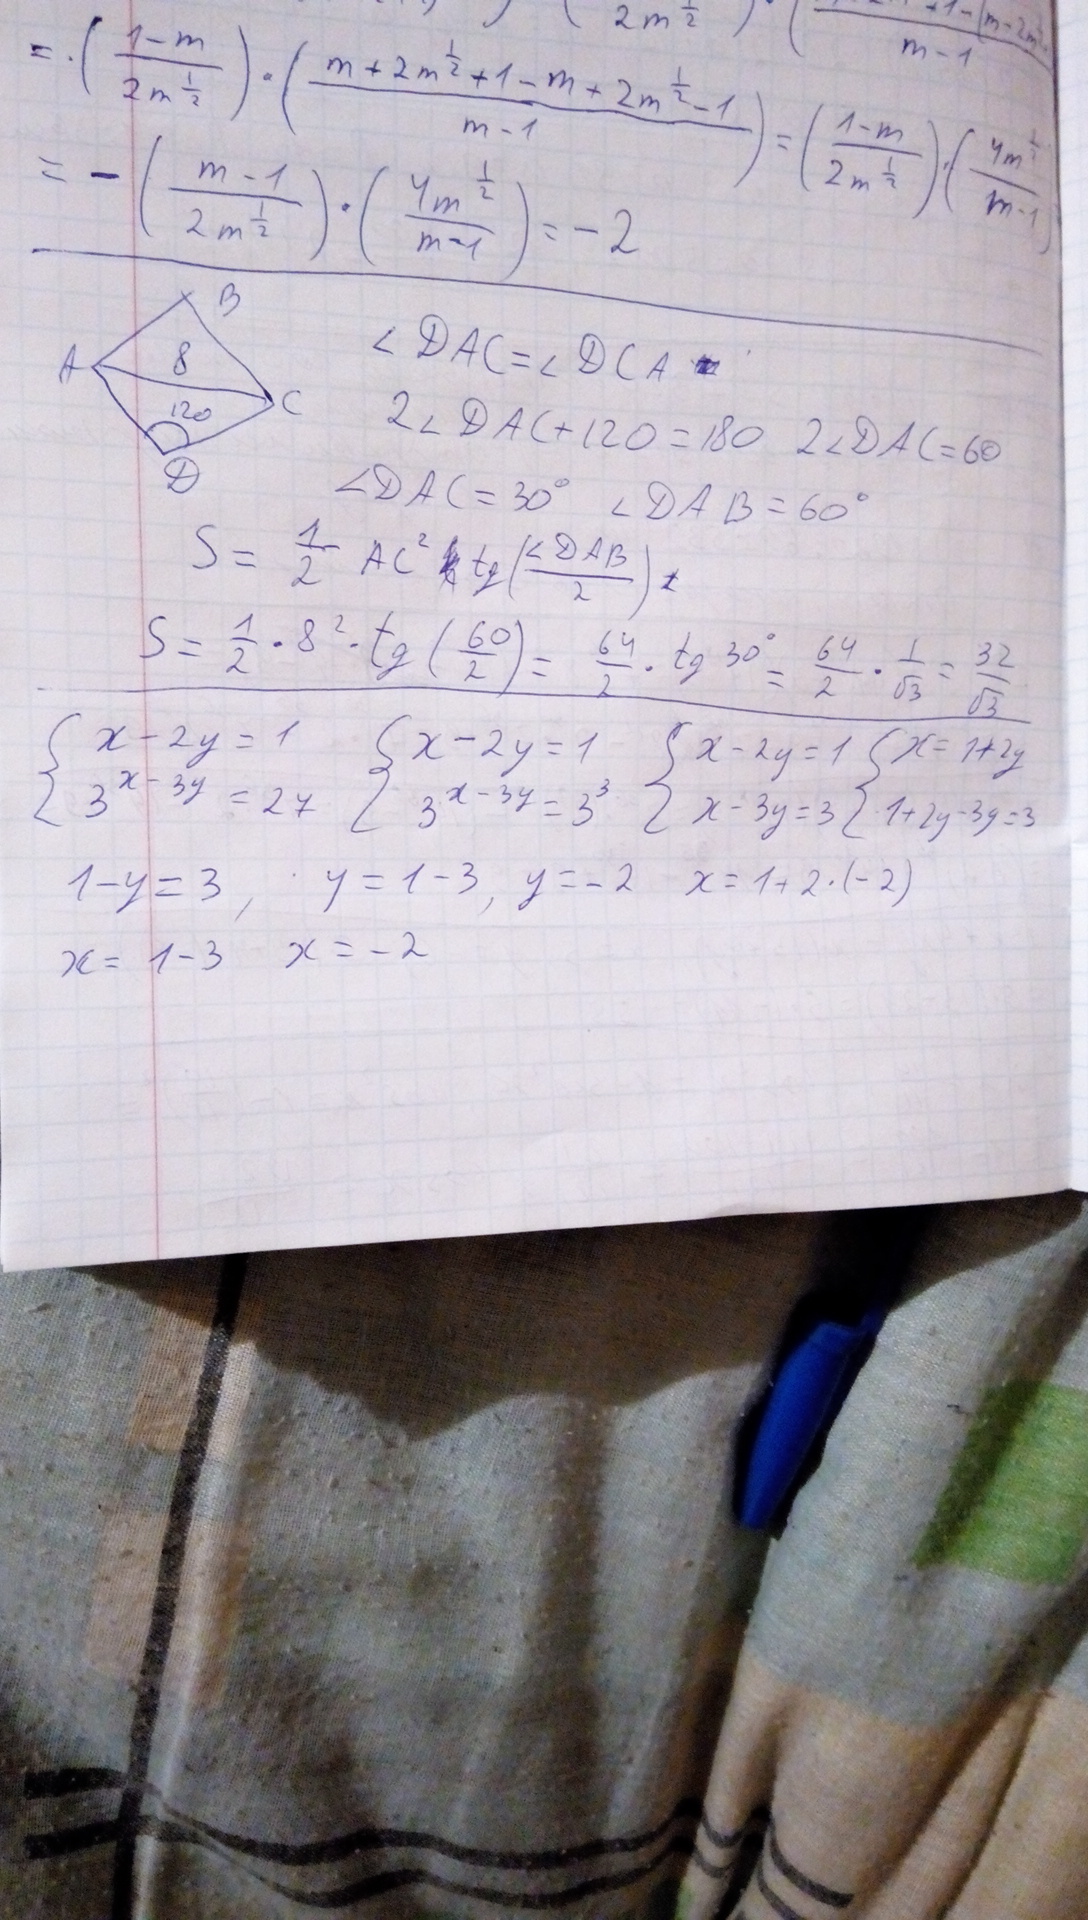 2m^{1/2}
m-1
= · ( (1-m)/(2m^{1/2}) ) · ( (m+2m^{1/2}+1-m+2m^{1/2}-1)/(m-1) ) = ( (1-m)/(2m^{1/2}) ) · ( (4m^{1/2})/(m-1) )
= - ( (m-1)/(2m^{1/2}) ) · ( (4m^{1/2})/(m-1) ) = -2
B
A 8 C
120
D
∠DAC=∠DCA
2∠DAC+120=180 2∠DAC=60
∠DAC=30° ∠DAB=60°
S = 1/2 AC² tg(∠DAB/2)
S = 1/2 · 8² · tg(60/2) = 64/2 · tg 30° = 64/2 · 1/√3 = 32/√3
{ x-2y=1 { x-2y=1 { x-2y=1 { x=1+2y
3^{x-3y}=27 3^{x-3y}=3^3 x-3y=3 1+2y-3y=3
1-y=3, y=1-3, y=-2 x=1+2·(-2)
x=1-3 x=-2